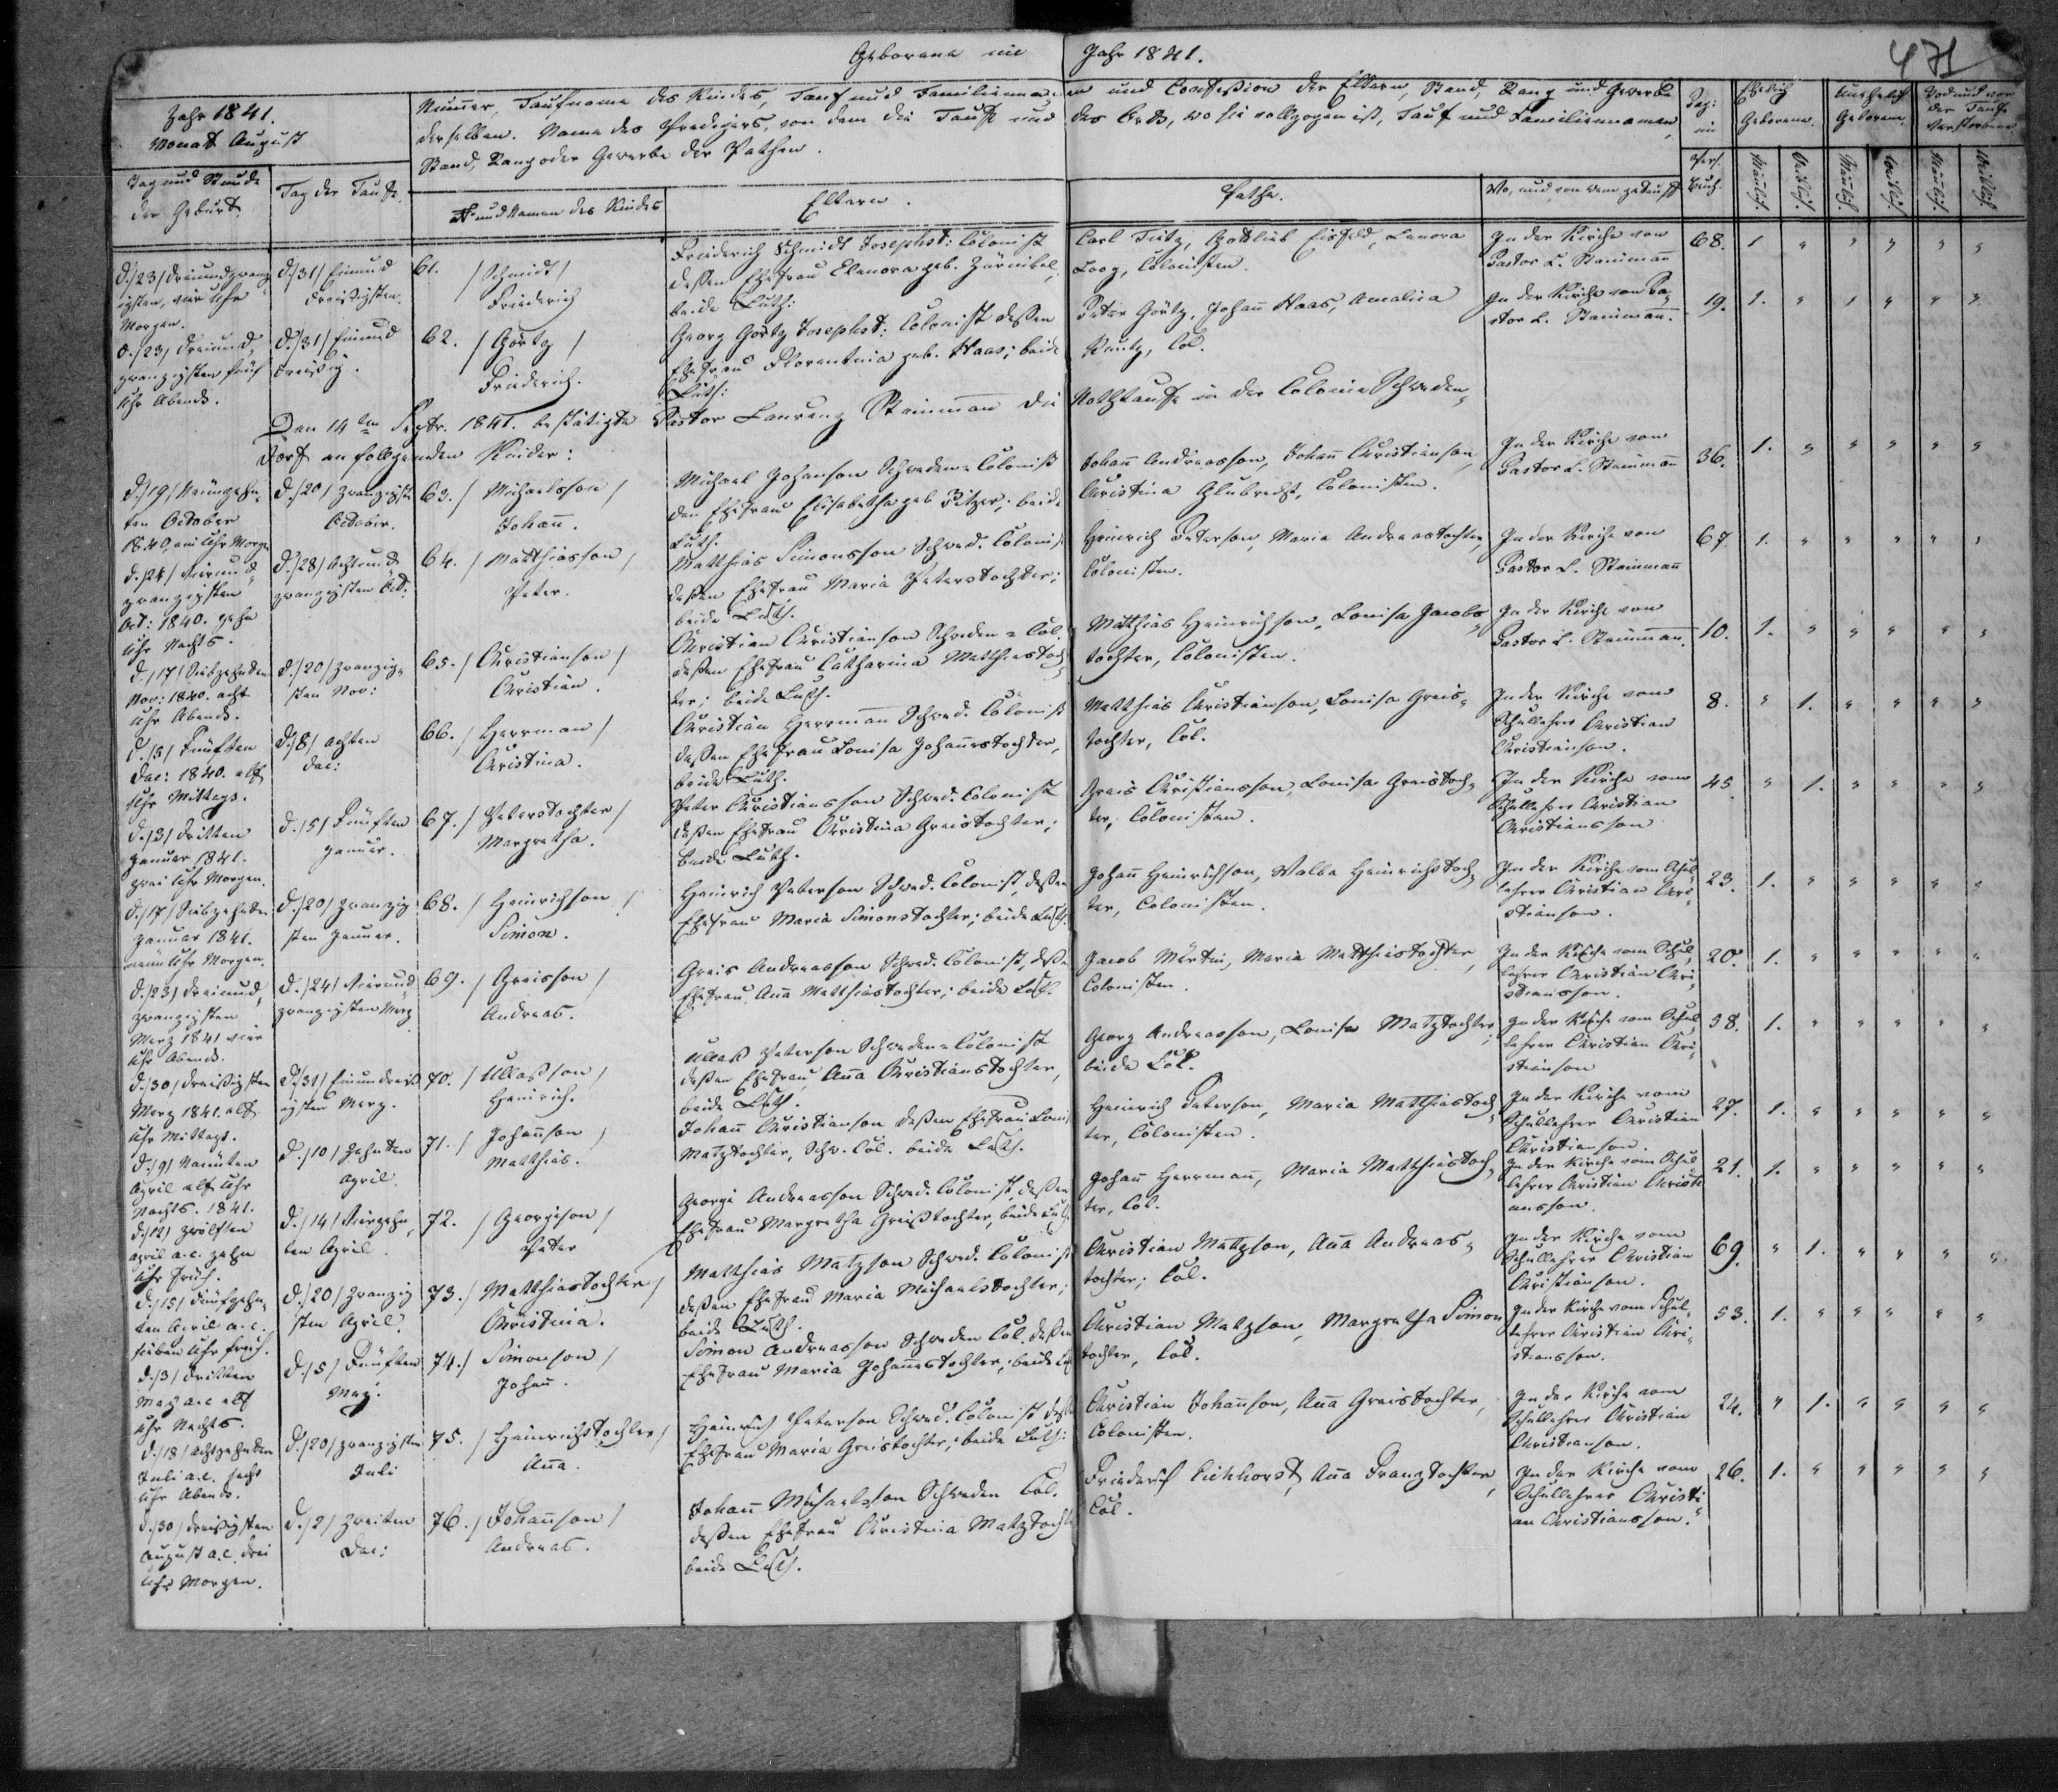 Geborene im Jahr 1841.
471
Jahr 1841.
Monat August
Nummer, Taufname des Kindes, Tauf und Familienname und Confeßion der Eltern, Stand, Rang und Gewerbe
derselben. Name des Predigers, von dem die Taufe und des Orts, wo sie vollzogen ist, Tauf und Familiennamen,
Stand, Rang oder Gewerbe der Pathen.
Tag und Stunde
der Geburt.
Tag der Taufe.
№ und Namen des Kindes
Eltern.
Pathe.
Wo, und von wem getauft
Pag:
im
Pers.
Buch.
Ehelich
Geborene.
Unehelich
Geborene
Todt und vor
der Taufe
Verstorbene
Mänlich.
Weiblich.
Mänlich.
Weiblich.
Mänlich.
Weiblich.
d. /23/ dreiundzwanz
igsten, vier Uhr
Morgen.
d. /31/ Einund
dreißigsten.
61. / Schmidt /
Friederich
Friederich Schmidt Josephst: Colonist
deßen Ehefrau Elenora geb. Zürnikel,
beide Luth:
Carl Tietz, Gottlieb Eisfeld, Lenora
Looz, Colonisten.
In der Kirche von
Pastor L. Steinmann
68. 1 " " " " "
d. /23/ dreiund
zwanzigsten fünf
Uhr Abends.
d. /31/ Einund
dreißig.
62. / Görtz /
Friederich.
Georg Görtz Josephst: Colonist deßen
Ehefrau Florentina geb. Haas; beide
Luth:
Peter Görtz, Johann Haas, Amalia
Kuntz, Col.
In der Kirche von Pa
stor L. Steinmann.
19. 1. " " " " "
Den 14ten Septr. 1841. bestätigte Pastor Laurenz Steinmann die Nothtaufe in der Colonie Schweden
dorf an folgenden Kinder:
d. /19/ Neunzehn
ten October
1840, ein Uhr Morge
d. /20/ zwanzigste
October.
63. / Michaelsson /
Johann.
Michael Johanson Schweden-Colonist
den Ehefrau Elisabetha geb Pitzer; beide
Luth.
Johann Andreasson, Johann Christianson
Christina Glubrecht, Colonisten.
In der Kirche von
Pastor L. Steinmann
36. 1. " " " " "
d. /24/ Vierund
zwanzigsten
Oct: 1840. zehn
Uhr Nachts.
d. /28/ Achtund
zwanzigsten Oct.
64. / Matthiasson /
Peter.
Matthias Simonsson Schwed. Colonis
deßen Ehefrau Maria Peterstochter;
beide Luth.
Heinrich Peterson, Maria Andreastochter,
Colonisten.
In der Kirche von
Pastor L. Steinmann
67. 1. " " " " "
d. /17/ Siebzehnten
Nov: 1840. acht
Uhr Abends.
d. /20/ zwanzig
sten Nov:
65. / Christianson /
Christian.
Christian Christianson Schweden-Col.
deßen Ehefrau Catharina Matthiastoch
ter; beide Luth.
Matthias Heinrichson, Louisa Jacobs
tochter, Colonisten.
In der Kirche von
Pastor L. Steinmann.
10. 1. " " " " "
d. /5/ Fünften
Dec: 1840. elf
Uhr Mittags.
d. /8/ achten
Dec:
66. / Herrman /
Christina.
Christian Herrmann Schwed. Colonist
deßen Ehefrau Louisa Johannestochter,
beide Luth.
Matthias Christianson, Louisa Greis
tochter, Col.
In der Kirche vom
Schullehrer Christian
Christianson.
8. " 1. " " " "
d. /3/ dritten
Januar 1841.
zwei Uhr Morgen.
d. /5/ Fünften
Januar.
67. / Peterstochter /
Margretha.
Peter Christiansson Schwed. Colonist
deßen Ehefrau Christina Greistochter;
beide Luth.
Greis Christiansson, Louisa Greistoch
ter, Colonisten.
In der Kirche vom
Schullehrer Christian
Christiansson
45. " 1. " " " "
d. /17/ Siebzehnten
Januar 1841.
neun Uhr Morgen.
d. /20/ zwanzig
sten Januar.
68. / Heinrichson /
Simon.
Heinrich Peterson Schwed. Colonist, deßen
Ehefrau Maria Simonstochter; beide Luth.
Johann Heinrichson, Walba Heinrichstoch
ter, Colonisten.
In der Kirche vom Schul
lehrer Christian Chri
stianson.
23. 1. " " " " "
d. /23/ dreiund
zwanzigsten
Merz 1841 vier
Uhr Abends.
d. /24/ Vierund
zwanzigsten Merz
69. / Greisson /
Andreas.
Greis Andreasson Schwed. Colonist, deße
Ehefrau Anna Matthiastochter; beide Luth.
Jacob Märtni, Maria Matthiastochter,
Colonisten.
In der Kirche vom Schul
lehrer Christian Chri
stiansson.
20. 1. " " " " "
d. /30/ dreißigsten
Merz 1841. elf
Uhr Mittags.
d. /31/ Einundreiß
igsten Merz.
70. / Ullaßson /
Heinrich.
Ullaß Peterson Schweden-Colonist
deßen Ehefrau Anna Christianstochter,
beide Luth.
Georg Andreasson, Louisa Matztochter,
beide Col.
In der Kirche vom Schul
lehrer Christian Chri
stianson
38. 1. " " " " "
d. /9/ Neunten
April elf Uhr
Nachts. 1841.
d. /10/ Zehnten
April.
71. / Johannson /
Matthias.
Johann Christianson deßen Ehefrau Louis
Matztochter, Schw. Col. beide Luth.
Heinrich Peterson, Maria Matthiastoch
ter, Colonisten.
In der Kirche vom
Schullehrer Christian
Christianson.
27. 1. " " " " "
d. /12/ zwölften
April a.c. zehn
Uhr Früh.
d. /14/ Vierzehn
ten April.
72. / Georgison /
Peter
Georgi Andreasson Schwed. Colonist, deßen
Ehefrau Margretha Greistochter, beide Luth
Johann Herrmann, Maria Matthiastoch
ter, Col.
In der Kirche vom Schul
lehrer Christian Christi
ansson.
21. 1. " " " " "
d. /15/ Fünfzehn
ten April a.c.
sieben Uhr früh.
d. /20/ zwanzig
sten April.
73. / Matthiastochter /
Christina.
Matthias Matzson Schwed. Colonist
deßen Ehefrau Maria Michaelstochter;
beide Luth.
Christian Matzson, Anna Andreas
tochter; Col.
In der Kirche vom
Schullehrer Christian
Christianson.
69. " 1. " " " "
d. /3/ dritten
May a.c. elf
Uhr Nachts.
d. /5/ Fünften
May.
74. / Simonson /
Johann.
Simon Andreasson Schweden Col. deßen
Ehefrau Maria Johannestochter; beide Lu
Christian Matzson, Margretha Simon
tochter, Col.
In der Kirche vom Schul
lehrer Christian Chri
stiansson.
53. 1. " " " " "
d. /18/ achtzehnten
Juli a.c. sechs
Uhr Abends.
d. /20/ zwanzigsten
Juli
75. / Heinrichstochter /
Anna.
Heinrich Peterson Schwed. Colonist deße
Ehefrau Maria Greistochter; beide Luth:
Christian Johannson, Anna Greistochter,
Colonisten.
In der Kirche vom
Schullehrer Christian
Christianson.
24. " 1. " " " "
d. /30/ dreißigsten
August a.c. drei
Uhr Morgen.
d. /2/ zweiten
Dec:
76. / Johannson /
Andreas.
Johann Michaelsson Schweden Col.
deßen Ehefrau Christina Matztocht
beide Luth.
Friederich Eichhorst, Anna Franztochter,
Col.
In der Kirche vom
Schullehrer Christi
an Christiansson.
26. 1. " " " " "